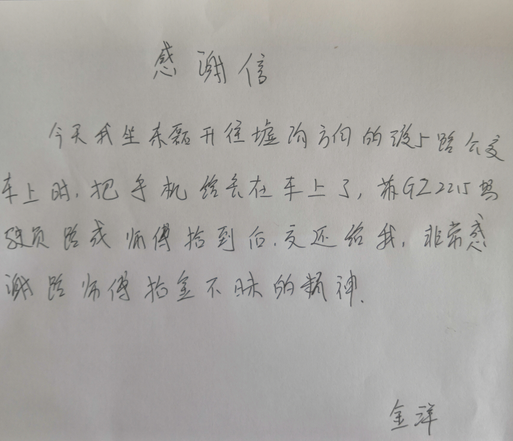 感谢信
今天我坐东磊开往墟沟方向的游5路公交
车上时,把手机给丢在车上了,苏GZ2215驾
驶员路成师傅拾到后,交还给我,非常感
谢路师傅拾金不昧的精神.
金洋